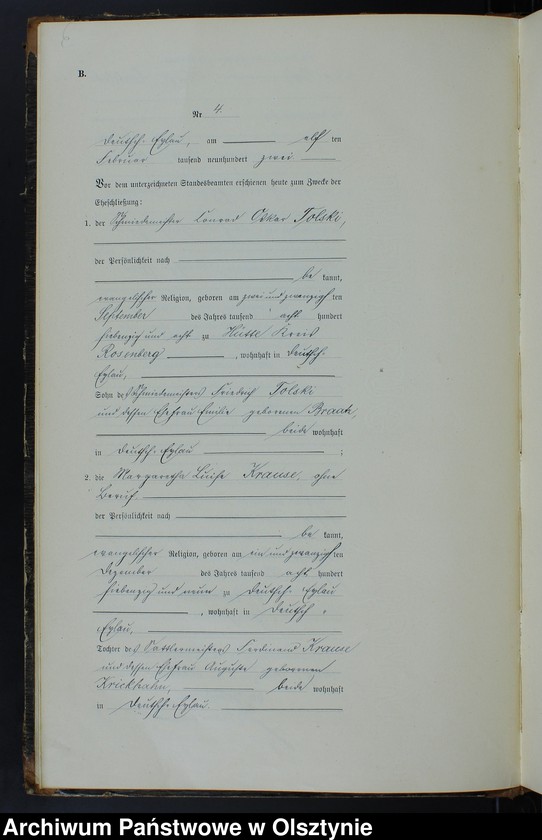 B.
Nr 4.
Deutsch-Eylau, am elf ten
Februar tausend neunhundert zwei
Vor dem unterzeichneten Standesbeamten erschienen heute zum Zwecke der
Eheschließung:
1. der Schmiedemeister Conrad Oskar Tolski,
der Persönlichkeit nach
be kannt,
evangelischer Religion, geboren am zwei und zwanzigsten
September des Jahres tausend acht hundert
siebenzig und acht zu Hütte Kreis
Rosenberg, wohnhaft in Deutsch-
Eylau,
Sohn des Schmiedemeisters Friedrich Tolski
und dessen Ehefrau Emilie geborenen Braatz,
beide wohnhaft
in Deutsch-Eylau ;
2. die Margaretha Luise Krause, ohne
Beruf,
der Persönlichkeit nach
be kannt,
evangelischer Religion, geboren am ein und zwanzigsten
Dezember des Jahres tausend acht hundert
siebenzig und neun zu Deutsch-Eylau
, wohnhaft in Deutsch-
Eylau,
Tochter des Sattlermeisters Ferdinand Krause
und dessen Ehefrau Auguste geborenen
Krickhahn, beide wohnhaft
in Deutsch-Eylau.
Archiwum Państwowe w Olsztynie